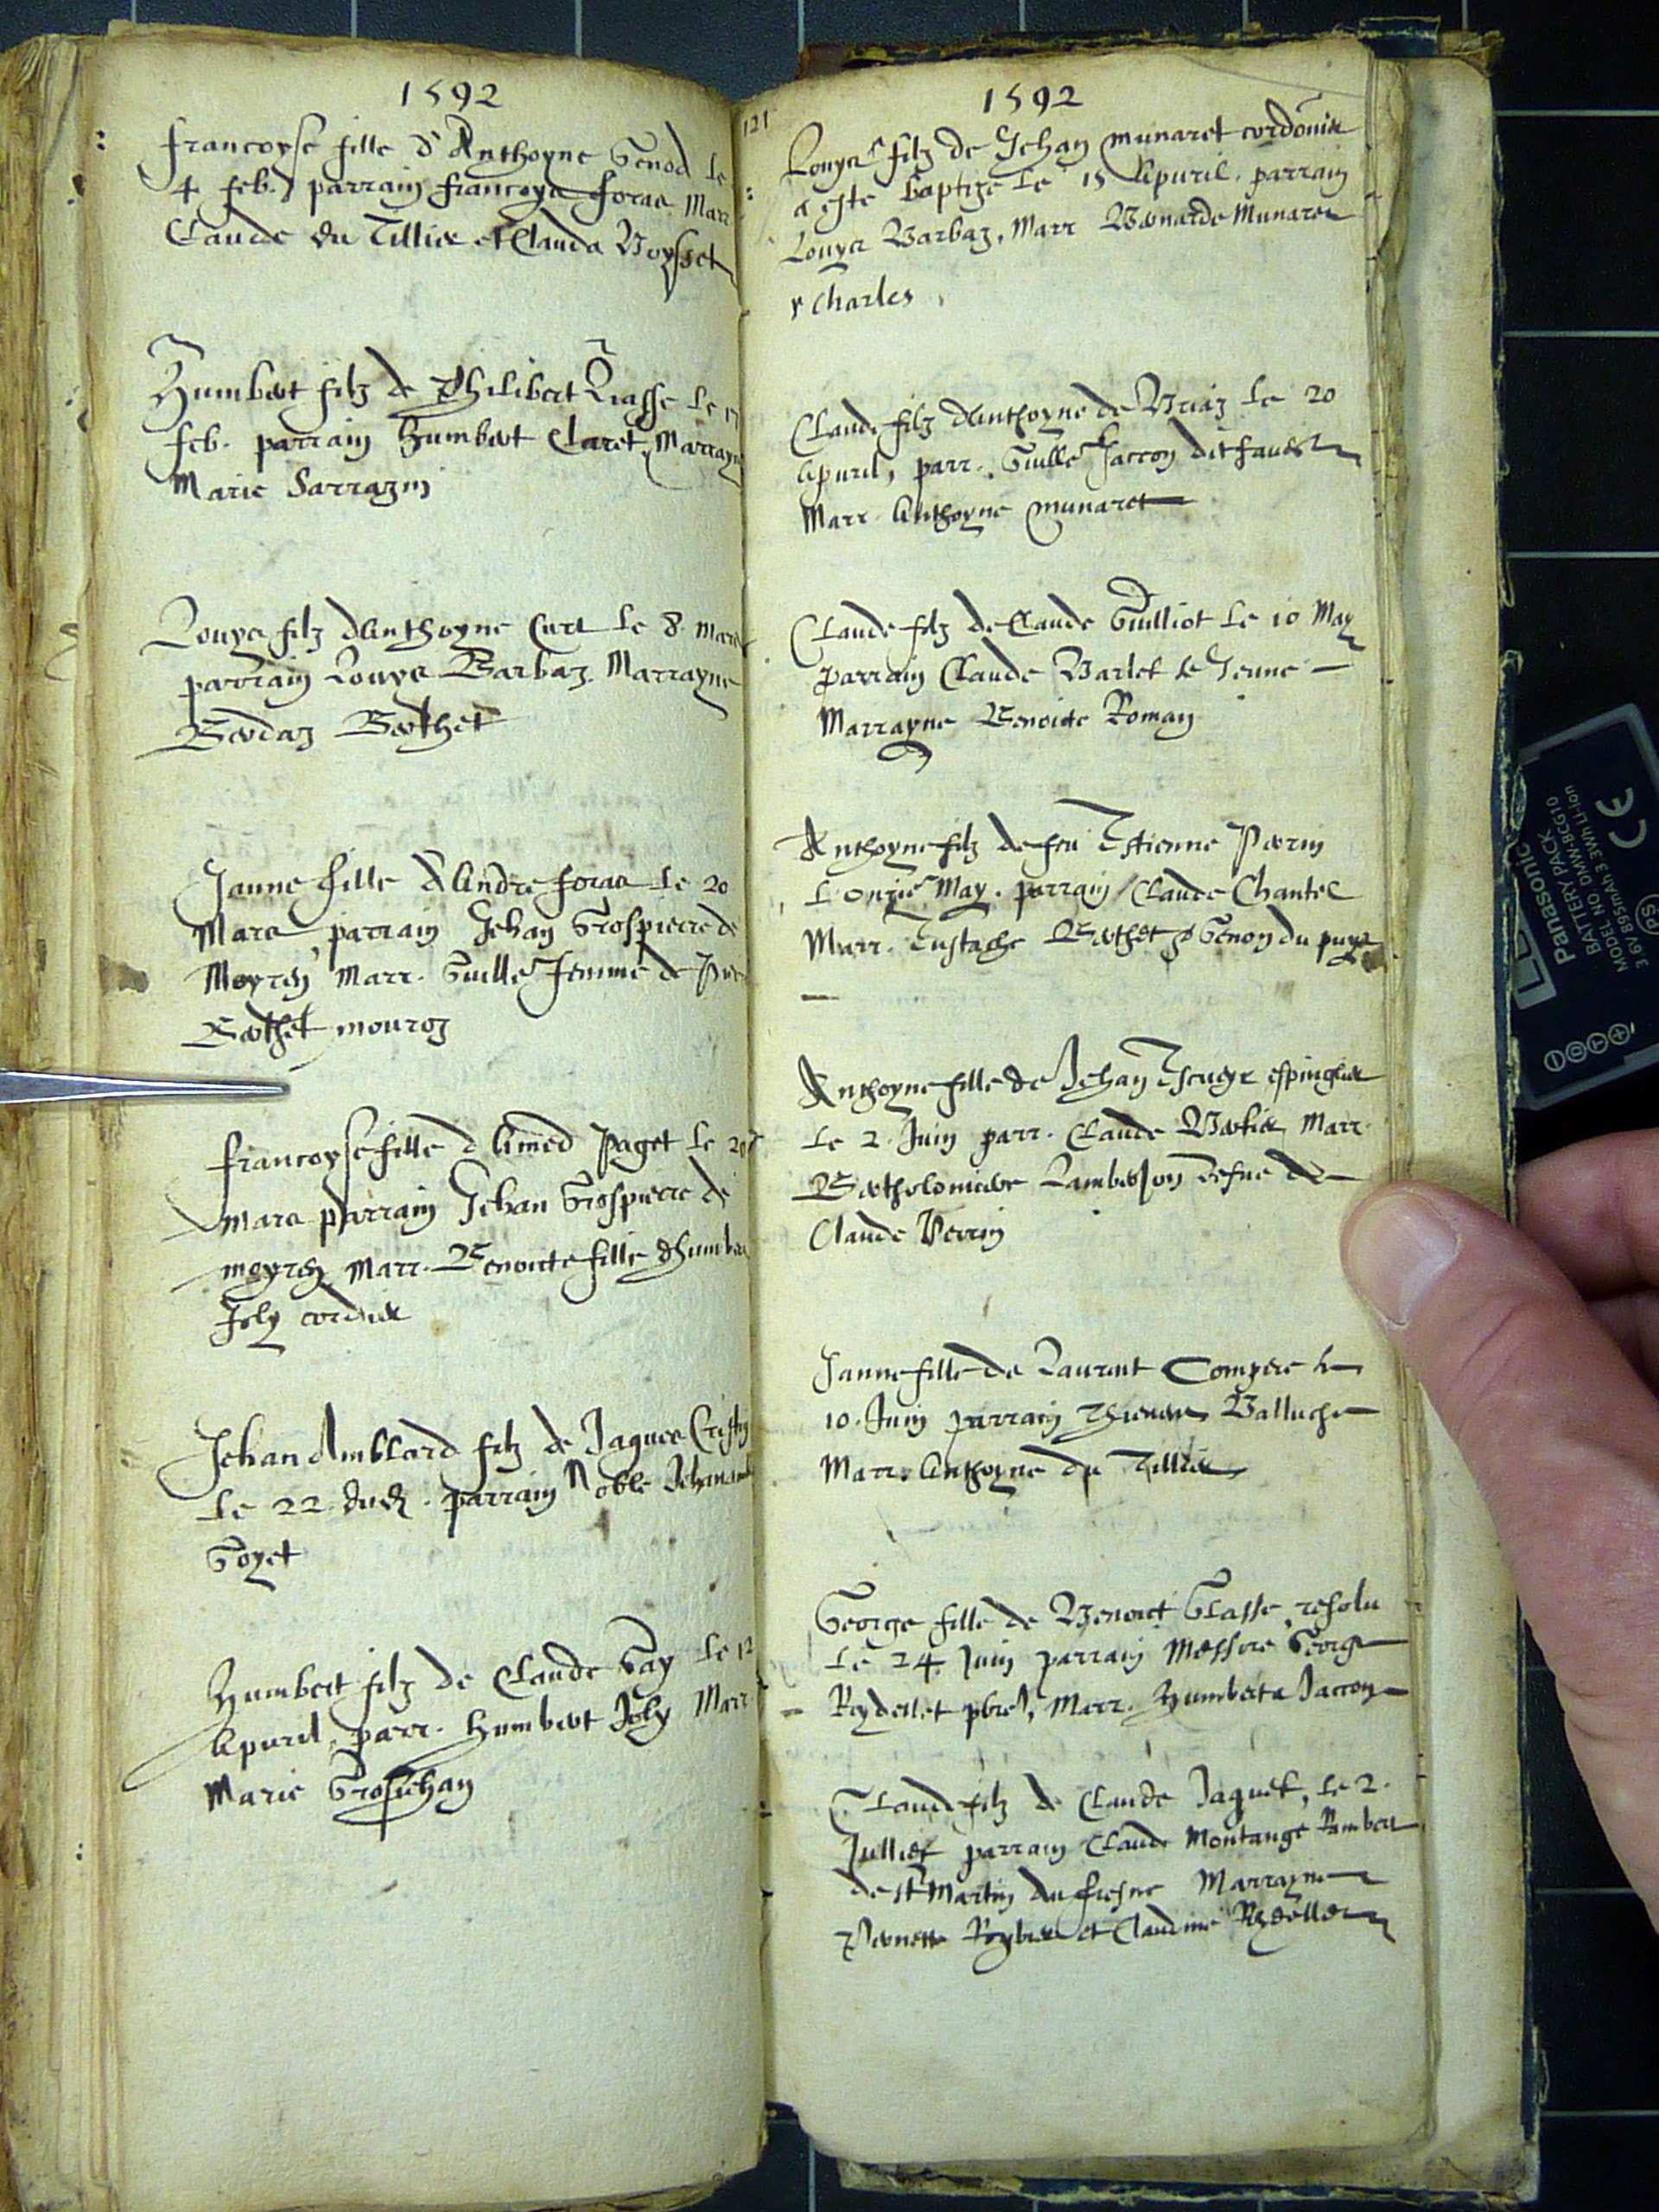 1592
Francoyse fille d'Anthoyne Genod le
4 feb. parrain Francoys Foras Marr
Claude du Tillier et Clauda Voysset
Humbert filz de Philibert Liasse le 17
feb. parrain Humbert Claret, Marrayn
Marie Sarrazin
Louys filz d'Anthoyne Curt le 8 mars
parrain Louys Barbaz, Marrayne
Berdaz Berthet
Janne fille d'Andre Foras le 20
Mars parrain Jehan Grospierre de
Meyrez Marr. Guille femme de
Berthet mouroz
Francoyse fille d'Amed Paget le
mars parrain Jehan Grospierre de
meyrez Marr. Benoite fille d'humbert
Joly cordier
Jehan Amblard filz de Jaques
le 22 dud. parrain Noble Jehan
Goyet
Humbert filz de Claude Gay le 12
Apuril, parr. Humbert Joly Marr
Marie Grosjehan
121
1592
Louys filz de Jehan Munaret cordonier
a este baptize le 15 Apuril. parrain
Louys Barbaz, Marr Bernarde Munaret
r Charles
Claude filz d'Anthoyne de Briaz le 20
Apuril, parr. Guille Jarron dit
Marr. Anthoyne Munaret
Claude filz de Claude Guilliot le 10 May
parrain Claude Barlet le Jeune
Marrayne Benoite Roman
Anthoyne filz de feu Estienne Perrin
L'onzie May. parrain Claude Chantel
Marr. Eustache Berthet Genon du puys
Anthoyne fille de Jehan Escuyr espinglier
le 2. Juin parr. Claude Marr.
Bertholomiere Lamberson vefue de
Claude Perrin
Janne fille de Laurent Compere le
10. Juin parrain Thieven Balluche
Marr. Anthoyne du Tillier
George fille de Benoict Glasse resolu
le 24 Juin parrain Messire George
Reydellet pbre, Marr. Humberte Jarron
Claude filz de Claude Jaquet, le 2.
Julliet parrain Claude Montange Rambert
de St Martin du Fresne Marrayne
Pernette et Claudine Reydellet
Panasonic
BATTERY PACK
MODEL NO. DMW-BCG10
3.6V 895mAh 3.3Wh Li-ion
CE